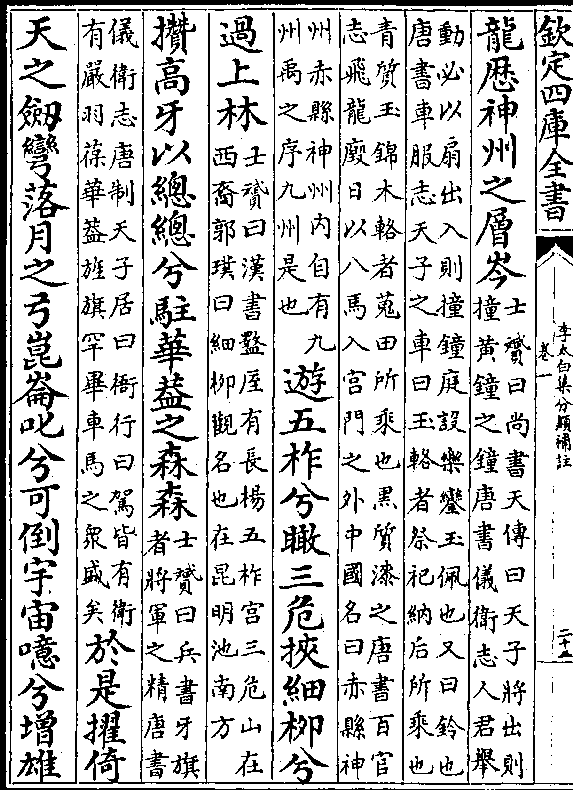 欽定四庫全書
李太白集分類補註
卷一
龍歷神州之層岑
士贇曰尚書天傳曰天子將出則
撞黃鐘之鐘唐書儀衛志人君舉
動必以扇出入則撞鐘庭設樂鑾玉佩也又曰鈴也
唐書車服志天子之車曰玉輅者祭祀納后所乘也
青質玉錦木輅者蒐田所乘也黑質漆之唐書百官
志飛龍廄日以八馬入宮門之外中國名曰赤縣神
州赤縣神州內自有九
州禹之序九州是也
遊五柞兮瞰三危挾細柳兮
過上林
士贇曰漢書盩厔有長楊五柞宮三危山在
西裔郭璞曰細柳觀名也在昆明池南方
攢高牙以總總兮駐華蓋之森森
士贇曰兵書牙旗
者將軍之精唐書
儀衛志唐制天子居曰衙行曰駕皆有衛
有嚴羽葆華蓋旌旗罕畢車馬之衆盛矣
於是擢倚
天之劒彎落月之弓崑崙叱兮可倒宇宙噫兮增雄